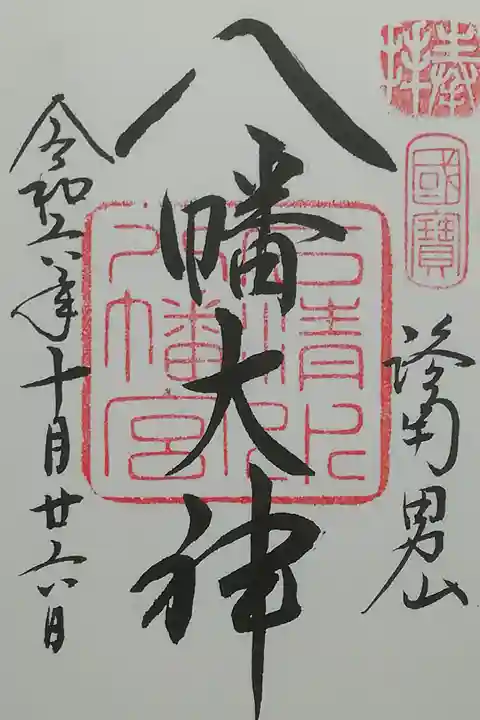 奉拝
國寶
洛南男山
八幡大神
石清水八幡宮
令和六年十月廿六日